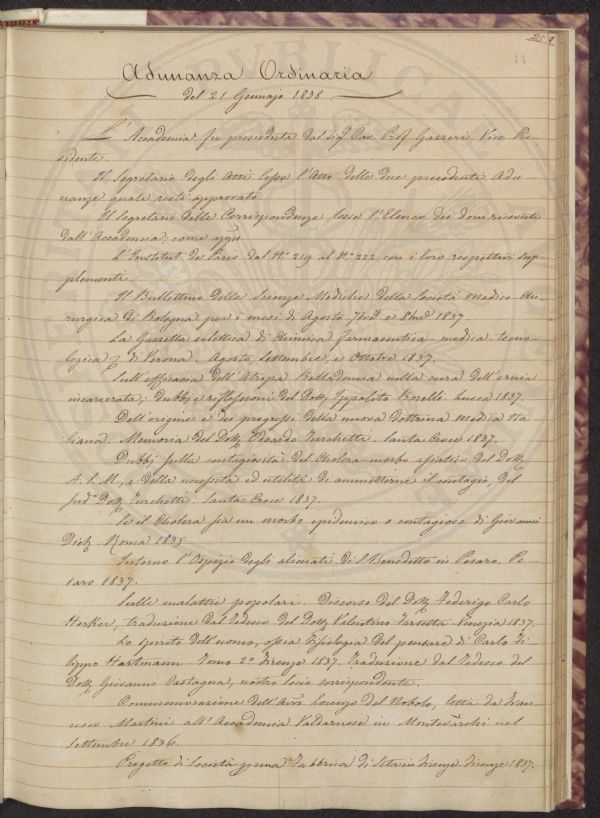 251
14
Adunanza Ordinaria
del 21 Gennajo 1838
L'Accademia fu presieduta dal Sig.r Cav. Prof. Gazzeri Vice Pre-
sidente.
Il Segretario degli Atti lesse l'Atto delle due precedenti Adu-
nanze quale restò approvato
Il Segretario delle Corrispondenze lesse l'Elenco dei doni ricevuti
dall'Accademia, come appo
L'Institut de Paris dal N.o 219 al N.o 222 con i loro respettivi sup-
plementi.
Il Bullettino delle Scienze Mediche della Società Medico-Chi-
rurgica di Bologna per i mesi di Agosto, 7bre e 8bre 1837.
La Gazzetta eclettica di Chimica farmaceutica-medica-tecno-
logica di Verona. Agosto, Settembre, e Ottobre 1837.
Sull'efficacia dell'Atropa Belladonna nella cura dell'ernia
incarcerata; dubbj e riflessioni del Dott. Ippolito Borelli. Lucca 1837.
Dell'origine e dei progressi della nuova dottrina medica ita-
liana. Memoria del Dott. Odoardo Turchetti. Santa Croce 1837.
Dubbj sulla contagiosità del Cholera-morbo asiatico del Dott.
A. L. M., e della necessità ed utilità di ammetterne il contagio, del
sud.o Dott. Turchetti. Santa Croce 1837.
Se il Cholera sia un morbo epidemico o contagioso di Giovanni
Roma 1835
Intorno l'Ospizio degli alienati di S. Benedetto in Pesaro. Pe-
saro 1837.
Sulle malattie popolari. Discorso del Dott. Federigo Carlo
Herker, traduzione dal Tedesco del Dott. Valentino Fassetta. Venezia 1837.
Lo spirito dell'uomo, ossia Fisiologia del pensare di Carlo Fi-
lippo Hartmann. Tomo 2.o Firenze 1837. Traduzione dal Tedesco del
Dott. Giovanni Castagna, nostro Socio corrispondente.
Commemorazione dell'Avv. Lorenzo del Nobolo, letta da Fran-
cesco Martini all'Accademia Valdarnese in Montevarchi nel
Settembre 1836.
Progetto di Società p una Fabbrica di Seta in Firenze. Firenze 1837.